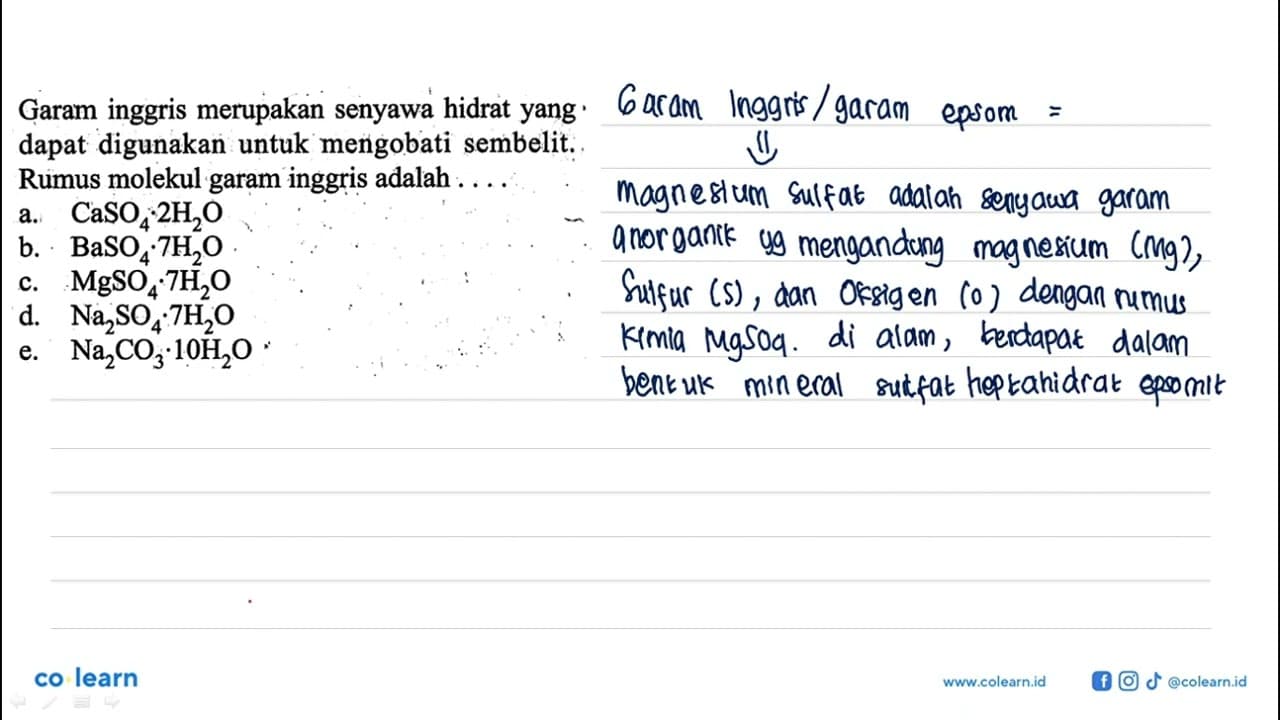 Garam inggris merupakan senyawa hidrat yang
dapat digunakan untuk mengobati sembelit.
Rumus molekul garam inggris adalah . . . .
a. CaSO₄·2H₂O
b. BaSO₄·7H₂O
c. MgSO₄·7H₂O
d. Na₂SO₄·7H₂O
e. Na₂CO₃·10H₂O
Garam Inggris/garam epsom =
⇓
magnesium sulfat adalah senyawa garam
anorganik yg mengandung magnesium (Mg),
Sulfur (S), dan Oksigen (O) dengan rumus
Kimia MgSO4. di alam, terdapat dalam
bentuk mineral sulfat heptahidrat epsomit
co learn
www.colearn.id
@colearn.id